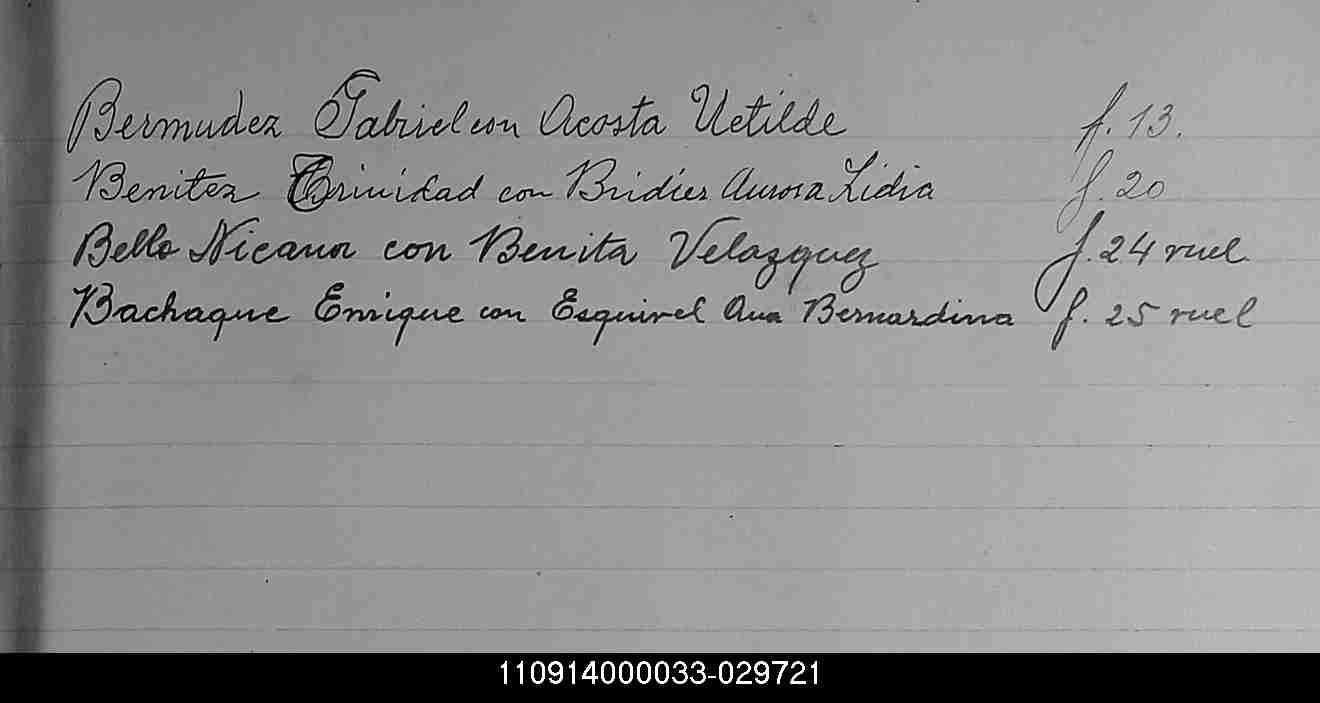 Bermudez Gabriel con Acosta Uetilde f. 13.
Benitez Trinidad con Bridier Aurora Lidia f. 20
Bello Nicanor con Benita Velazquez f. 24 vuel
Bachaque Enrique con Esquivel Ana Bernardina f. 25 vuel
110914000033-029721